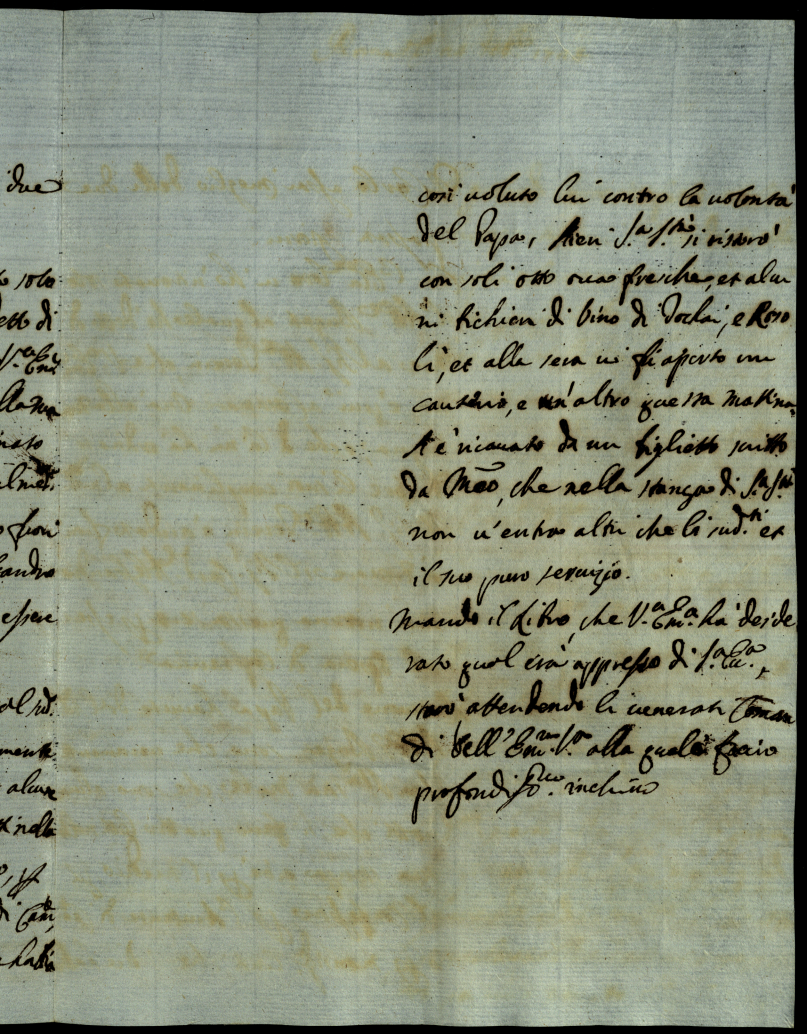 due
solo
etto di
V.a Em.
lla sua
nato
fuori
sandro
essere
al sud.
mente
alcun
nella
di Cam
così uoluto lui contro la uolontà
del Papa, Hieri S.a S.tà si ristorò
con soli otto oua fresche, et alcu
ni bichieri di Vino di Tochai, e Roso
lì, et alla sera ui fù aperto un
cauterio, e un'altro questa matina.
S'è ricauato da un biglietto scritto
da Meo, che nella stanza di S.a S.tà
non u'entra altri che li sud.ti et
il suo puro seruizio.
Mando il Libro, che V.a Em.a hà deside
rato qual era appresso di S.a Ecc.a,
starò attendendo li uenerati Coman
di dell'Em.za V.a alla quale faccio
profondiss.mo inchino